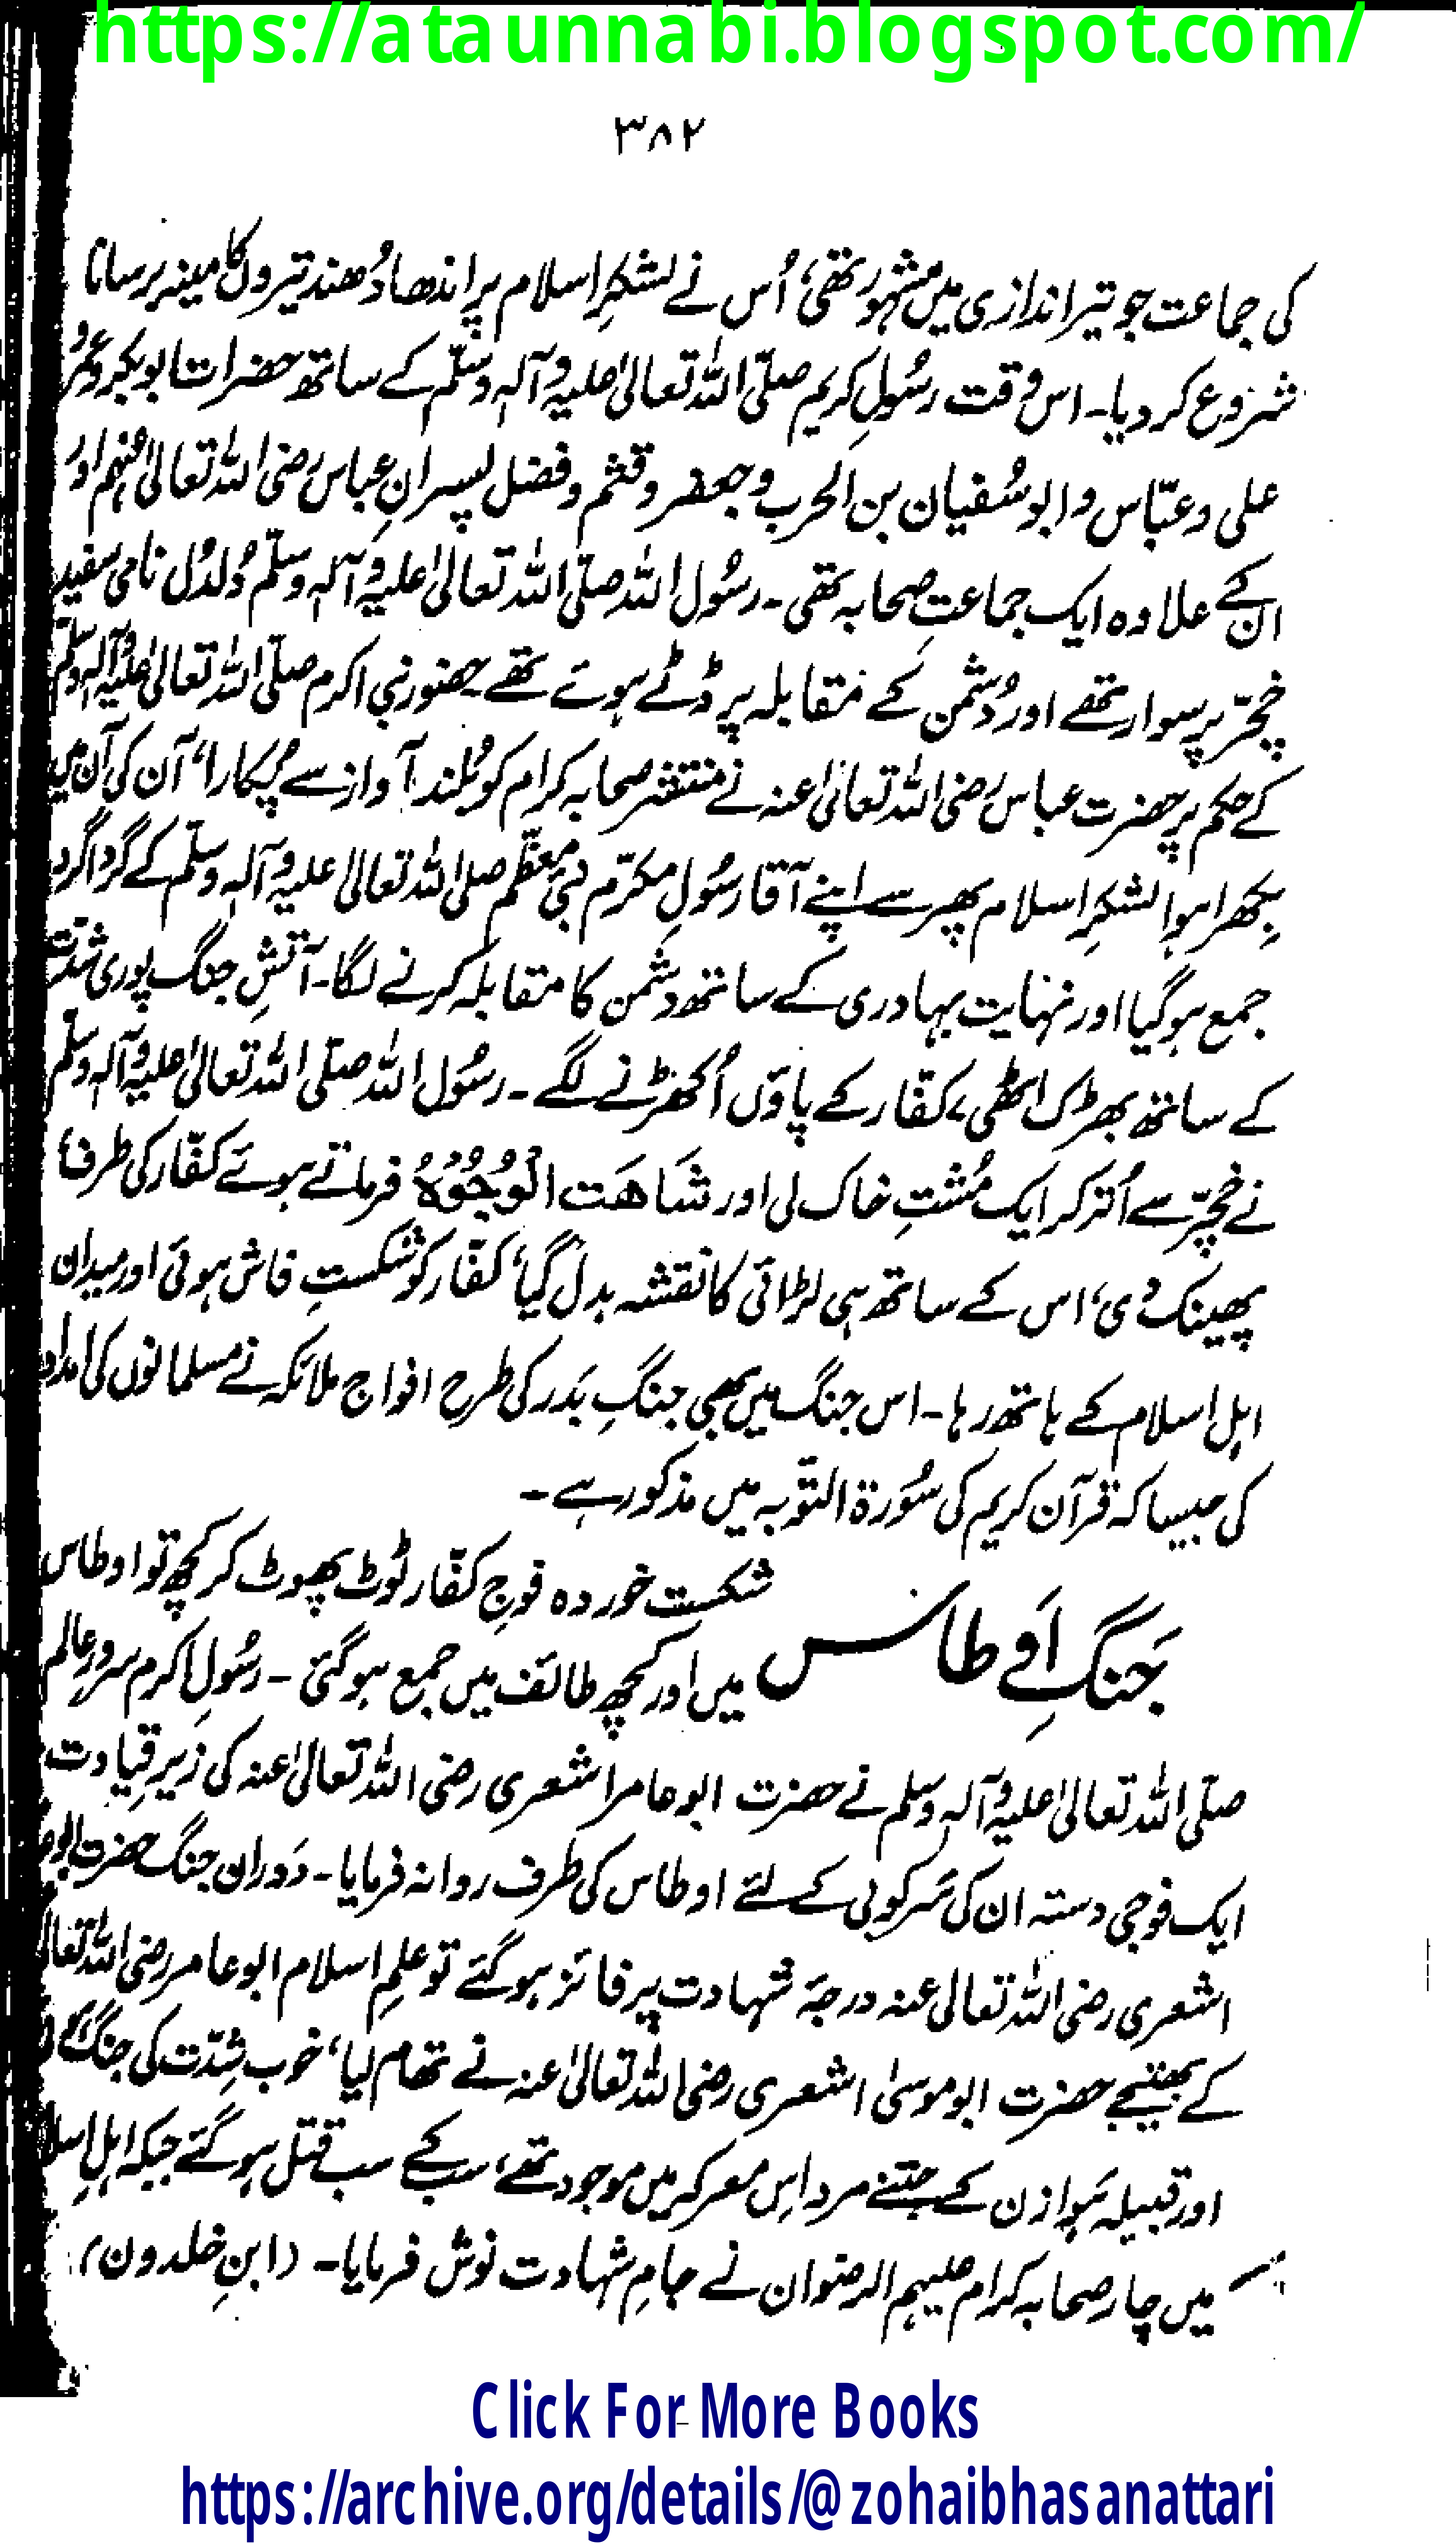 https://ataunnabi.blogspot.com/
۳۸۲
کی جماعت جو تیر اندازی میں مشہور تھی، اُس نے لشکرِ اسلام پر اندھا دُھند تیروں کا مینہ برسانا
شروع کر دیا۔ اس وقت رسُولِ کریم صلّی اللہ تعالیٰ علیہ وآلہٖ وسلّم کے ساتھ حضرات ابوبکر و عمرُ و
علی و عبّاس و ابو سُفیان بن الحرب و جعفر و قثم و فضل پسرانِ عباس رضی اللہ تعالیٰ عنہم اور
ان کے علاوہ ایک جماعتِ صحابہ تھی۔ رسُول اللہ صلّی اللہ تعالیٰ علیہ وآلہٖ وسلّم دُلدُل نامی سفید
خچّر پر سوار تھے اور دُشمن کے مقابلہ پر ڈٹے ہوئے تھے۔ حضور نبی اکرم صلّی اللہ تعالیٰ علیہ وآلہٖ وسلّم
کے حکم پر حضرت عباس رضی اللہ تعالیٰ عنہ نے منتشر صحابہ کرام کو بُلند آواز سے پُکارا، آن کی آن میں
بِکھرا ہوا لشکرِ اسلام پھر سے اپنے آقا رسُولِ مکرّم نبیِ معظّم صلی اللہ تعالیٰ علیہ وآلہٖ وسلّم کے گردا گرد
جمع ہو گیا اور نہایت بہادری کے ساتھ دشمن کا مقابلہ کرنے لگا۔ آتشِ جنگ پوری شدّت
کے ساتھ بھڑک اٹھی، کفّار کے پاؤں اُکھڑنے لگے۔ رسُول اللہ صلّی اللہ تعالیٰ علیہ وآلہٖ وسلّم
نے خچّر سے اُتر کر ایک مُشتِ خاک لی اور شَاهَت الْوُجُوْهُ فرماتے ہوئے کفّار کی طرف
پھینک دی، اس کے ساتھ ہی لڑائی کا نقشہ بدل گیا، کفّار کو شکستِ فاش ہوئی اور میدان
اہلِ اسلام کے ہاتھ رہا۔ اس جنگ میں بھی جنگِ بَدر کی طرح افواجِ ملائکہ نے مسلمانوں کی امداد
کی جیسا کہ قرآن کریم کی سُورۃ التوّبہ میں مذکور ہے۔
جَنگِ اَوطاس شکست خوردہ فوجِ کفّار ٹوٹ پھوٹ کر کچھ تو اوطاس
میں اور کچھ طائف میں جمع ہو گئی۔ رسُولِ اکرم سرورِ عالم
صلّی اللہ تعالیٰ علیہ وآلہٖ وسلم نے حضرت ابو عامر اشعری رضی اللہ تعالیٰ عنہ کی زیرِ قیادت
ایک فوجی دستہ ان کی سَرکوبی کے لئے اوطاس کی طرف روانہ فرمایا۔ دَورانِ جنگ حضرت
اشعری رضی اللہ تعالیٰ عنہ درجۂ شہادت پر فائز ہو گئے تو علمِ اسلام ابو عامر رضی اللہ تعالیٰ
کے بھتیجے حضرت ابو موسیٰ اشعری رضی اللہ تعالیٰ عنہ نے تھام لیا، خوب شِدّت کی جنگ
اور قبیلہ ہَوازن کے جتنے مرد اِس معرکہ میں موجود تھے، سب کے سب قتل ہو گئے جبکہ اہلِ
میں چار صحابہ کرام علیہم الرضوان نے جامِ شہادت نوش فرمایا۔ (ابنِ خلدون)
Click For More Books
https://archive.org/details/@zohaibhasanattari